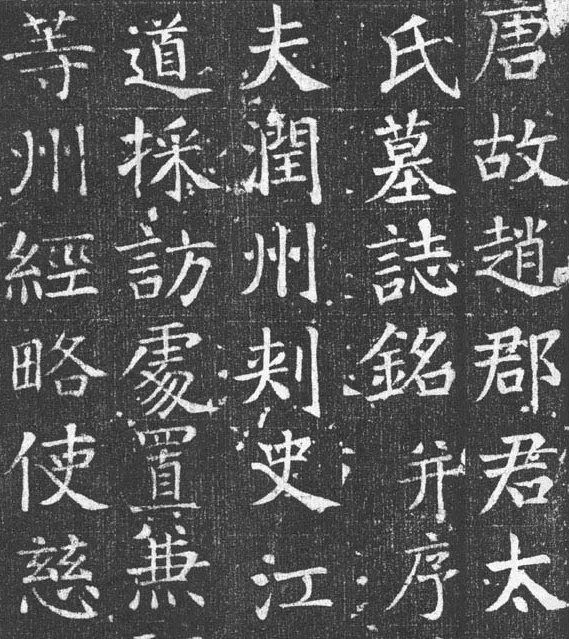 唐故趙郡君太
氏墓誌銘并序
夫潤州刺史江
道採訪處置兼
等州經略使慈